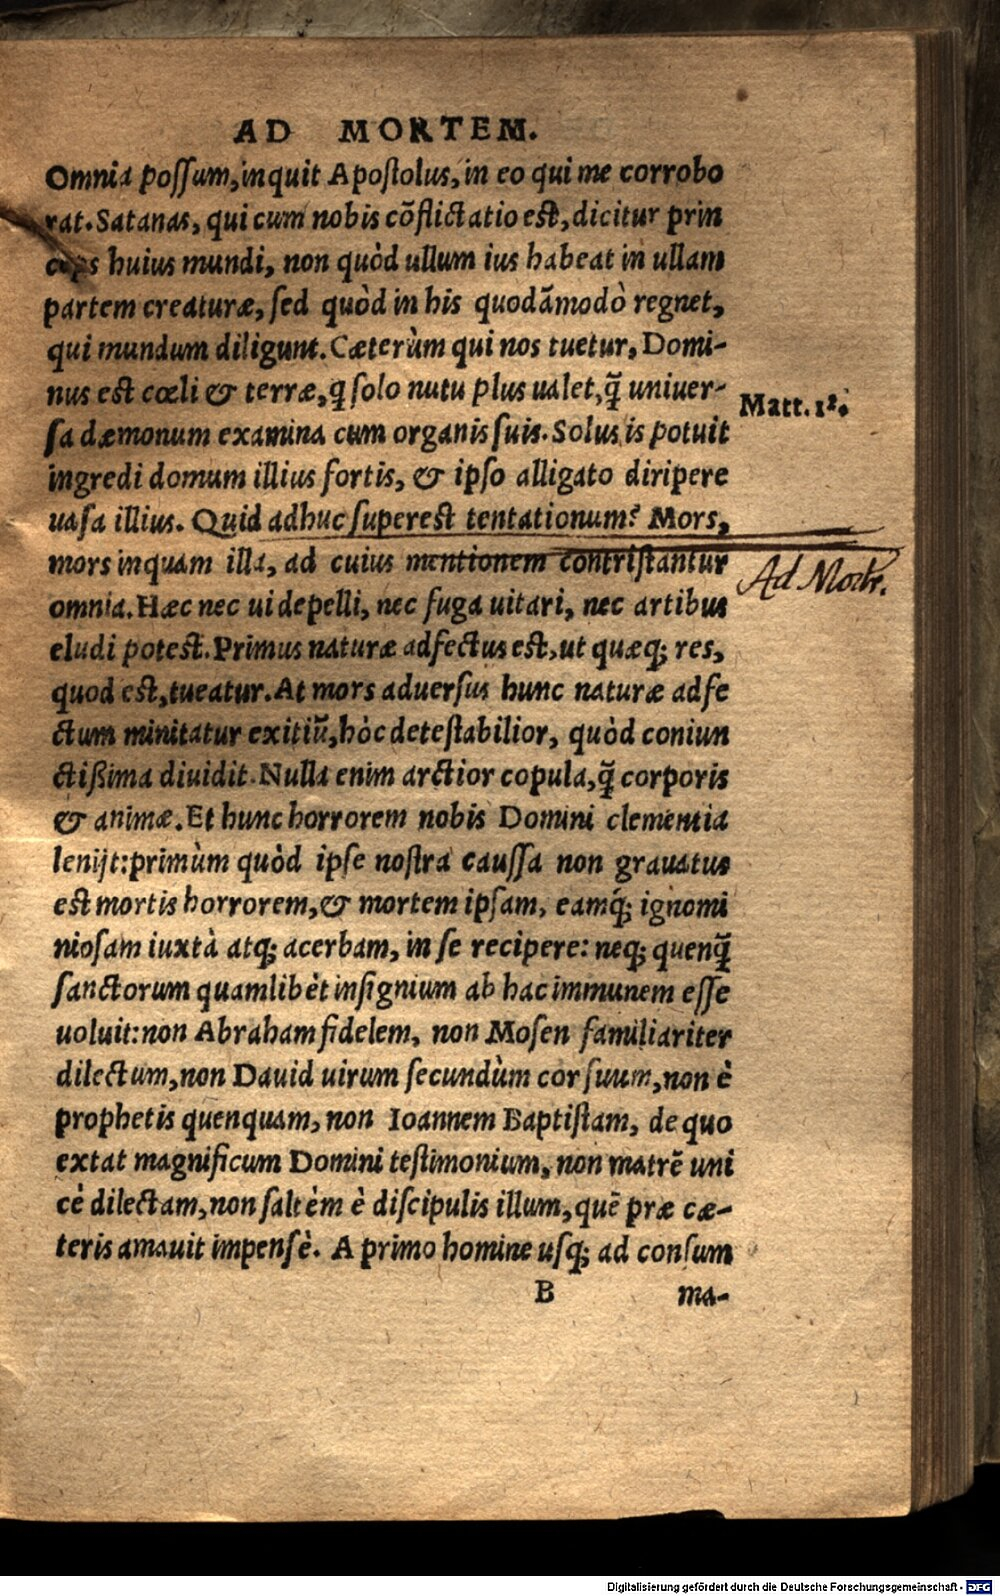 AD MORTEM.
Omnia possum, inquit Apostolus, in eo qui me corrobo
rat. Satanas, qui cum nobis cōflictatio est, dicitur prin
ceps huius mundi, non quòd ullum ius habeat in ullam
partem creaturæ, sed quòd in his quodāmodò regnet,
qui mundum diligunt. Cæterùm qui nos tuetur, Domi-
nus est cœli & terræ, q̃ solo nutu plus ualet, q̃ uniuer-
sa dæmonum examina cum organis suis. Solus is potuit
Matt. 12.
ingredi domum illius fortis, & ipso alligato diripere
uasa illius. Quid adhuc superest tentationum? Mors,
mors inquam illa, ad cuius mentionem contristantur
Ad Mort.
omnia. Hæc nec ui depelli, nec fuga uitari, nec artibus
eludi potest. Primus naturæ adfectus est, ut quæq; res,
quod est, tueatur. At mors aduersus hunc naturæ adfe
ctum minitatur exitiū, hòc detestabilior, quòd coniun
ctißima diuidit. Nulla enim arctior copula, q̃ corporis
& animæ. Et hunc horrorem nobis Domini clementia
lenijt: primùm quòd ipse nostra caussa non grauatus
est mortis horrorem, & mortem ipsam, eamq́; ignomi
niosam iuxtà atq; acerbam, in se recipere: neq; quenq̃
sanctorum quamlibèt insignium ab hac immunem esse
uoluit: non Abraham fidelem, non Mosen familiariter
dilectum, non Dauid uirum secundùm cor suum, non è
prophetis quenquam, non Ioannem Baptistam, de quo
extat magnificum Domini testimonium, non matrē uni
cè dilectam, non saltèm è discipulis illum, quē præ cæ-
teris amauit impensè. A primo homine usq; ad consum
B ma-
Digitalisierung gefördert durch die Deutsche Forschungsgemeinschaft - DFG